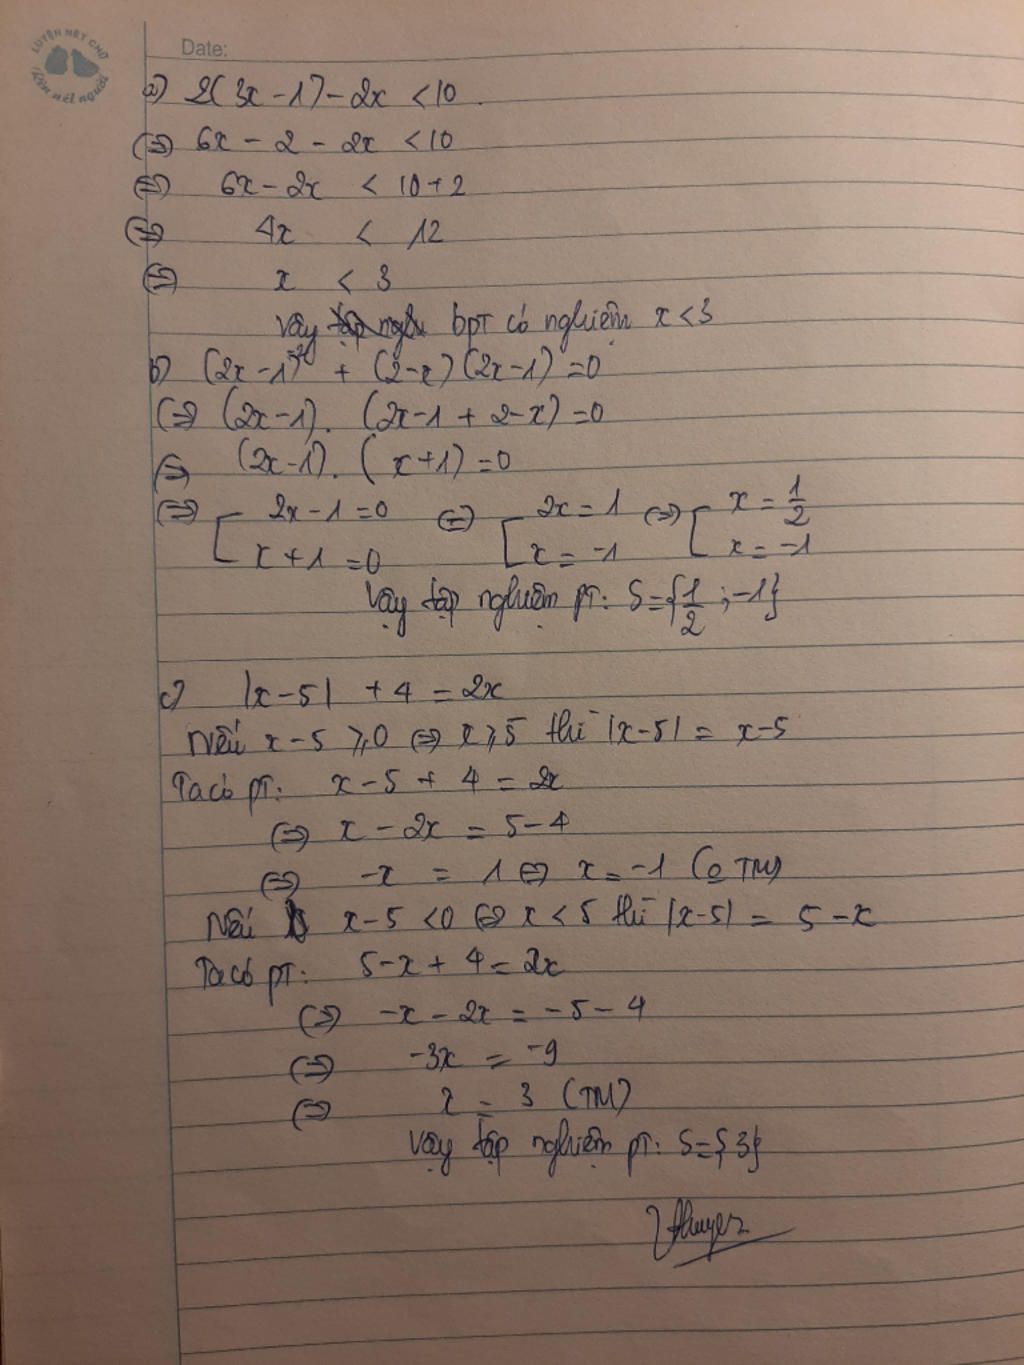 LUYỆN NÉT CHỮ
Rèn nết người
Date:
a) 2(3x - 1) - 2x < 10
⇔ 6x - 2 - 2x < 10
⇔ 6x - 2x < 10 + 2
⇔ 4x < 12
⇔ x < 3
Vậy bpt có nghiệm x < 3
b) (2x - 1)² + (2 - x)(2x - 1) = 0
⇔ (2x - 1). (2x - 1 + 2 - x) = 0
⇔ (2x - 1). (x + 1) = 0
⇔ [ 2x - 1 = 0 ⇔ [ 2x = 1 ⇔ [ x = 1/2
x + 1 = 0 x = -1 x = -1
Vậy tập nghiệm pt: S = {1/2 ; -1}
c) |x - 5| + 4 = 2x
Nếu x - 5 ≥ 0 ⇔ x ≥ 5 thì |x - 5| = x - 5
Ta có pt: x - 5 + 4 = 2x
⇔ x - 2x = 5 - 4
⇔ -x = 1 ⇔ x = -1 (o TM)
Nếu x - 5 < 0 ⇔ x < 5 thì |x - 5| = 5 - x
Ta có pt: 5 - x + 4 = 2x
⇔ -x - 2x = -5 - 4
⇔ -3x = -9
⇔ x = 3 (TM)
Vậy tập nghiệm pt: S = {3}